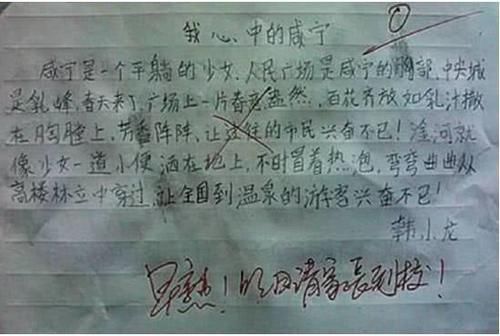 0
我心中的咸宁
咸宁是一个平躺的少女，人民广场是咸宁的胸部，中央城
是乳峰，春天来了，广场上一片春意盎然，百花齐放如乳汁撒
在胸膛上，芳香阵阵，让过往的市民兴奋不已！淦河就
像少女一道小便洒在地上，不时冒着热泡，弯弯曲曲从
高楼林立中穿过，让全国到温泉的游客兴奋不已！
韩小龙
早熟！明日请家长到校！